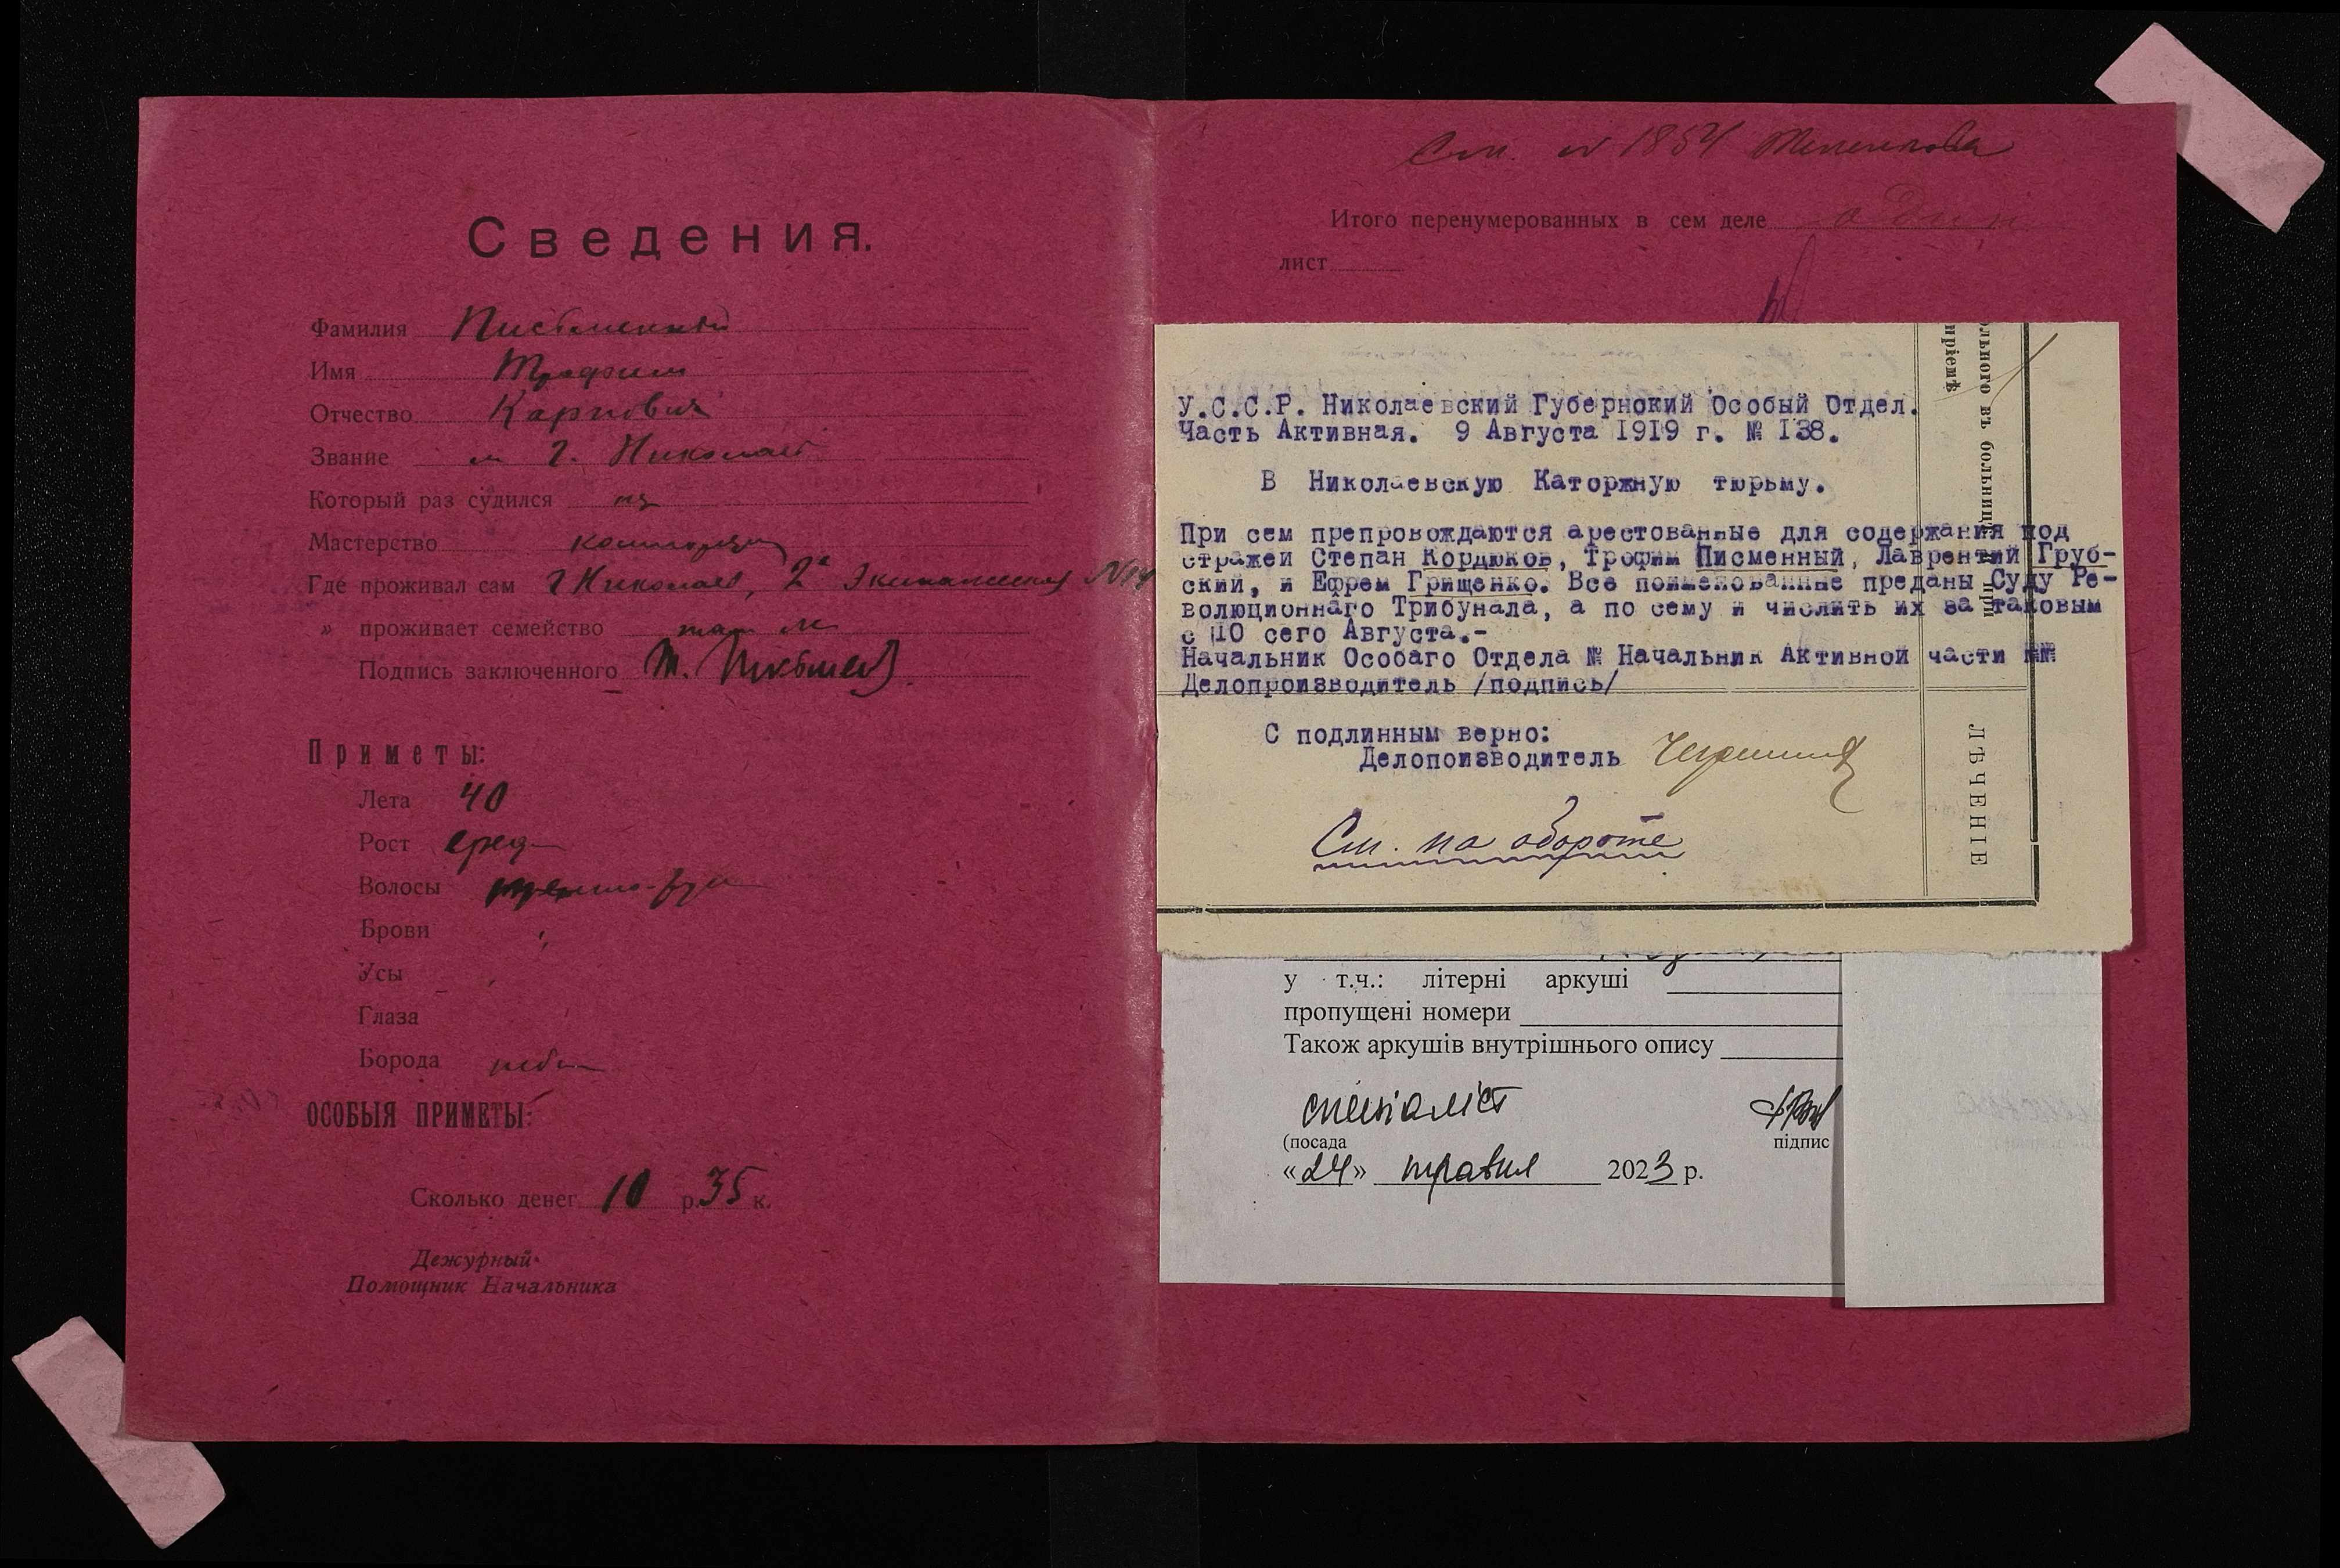 Сведения.
Фамилия Письменный
Имя Трофим
Отчество Карпович
Звание м г. Николаев
Который раз судился
Мастерство
Где проживал сам г Николаев, 2я Экипажеская N 14
" проживает семейство там же
Подпись заключенного Т.
Приметы:
Лета 40
Рост сред
Волосы темно-рус
Брови "
Усы "
Глаза
Борода
ОСОБЫЯ ПРИМЕТЫ:
Сколько денег 10 р. 35 к.
Дежурный
Помощник Начальника
См. N 1854
Итого перенумерованных в сем деле один
лист
У.С.С.Р. Николаевский Губернский Особый Отдел.
Часть Активная. 9 Августа 1919 г. № 138.
В Николаевскую Каторжную тюрьму.
При сем препровождаются арестованные для содержания под
стражей Степан Кордюков, Трофим Писменный, Лаврентий Груб-
ский, и Ефрем Грищенко. Все поименованные преданы Суду Ре-
волюционнаго Трибунала, а по сему и числить их за таковым
с 10 сего Августа.-
Начальник Особаго Отдела № Начальник Активной части №№
Делопроизводитель /подпись/
С подлинным верно:
Делопоизводитель
См. на обороте
ріемѣ
льного въ больниц при
ЛѢЧЕНІЕ
у т.ч.: літерні аркуші
пропущені номери
Також аркушів внутрішнього опису
спеціаліст
(посада підпис
«24» травня 2023 р.